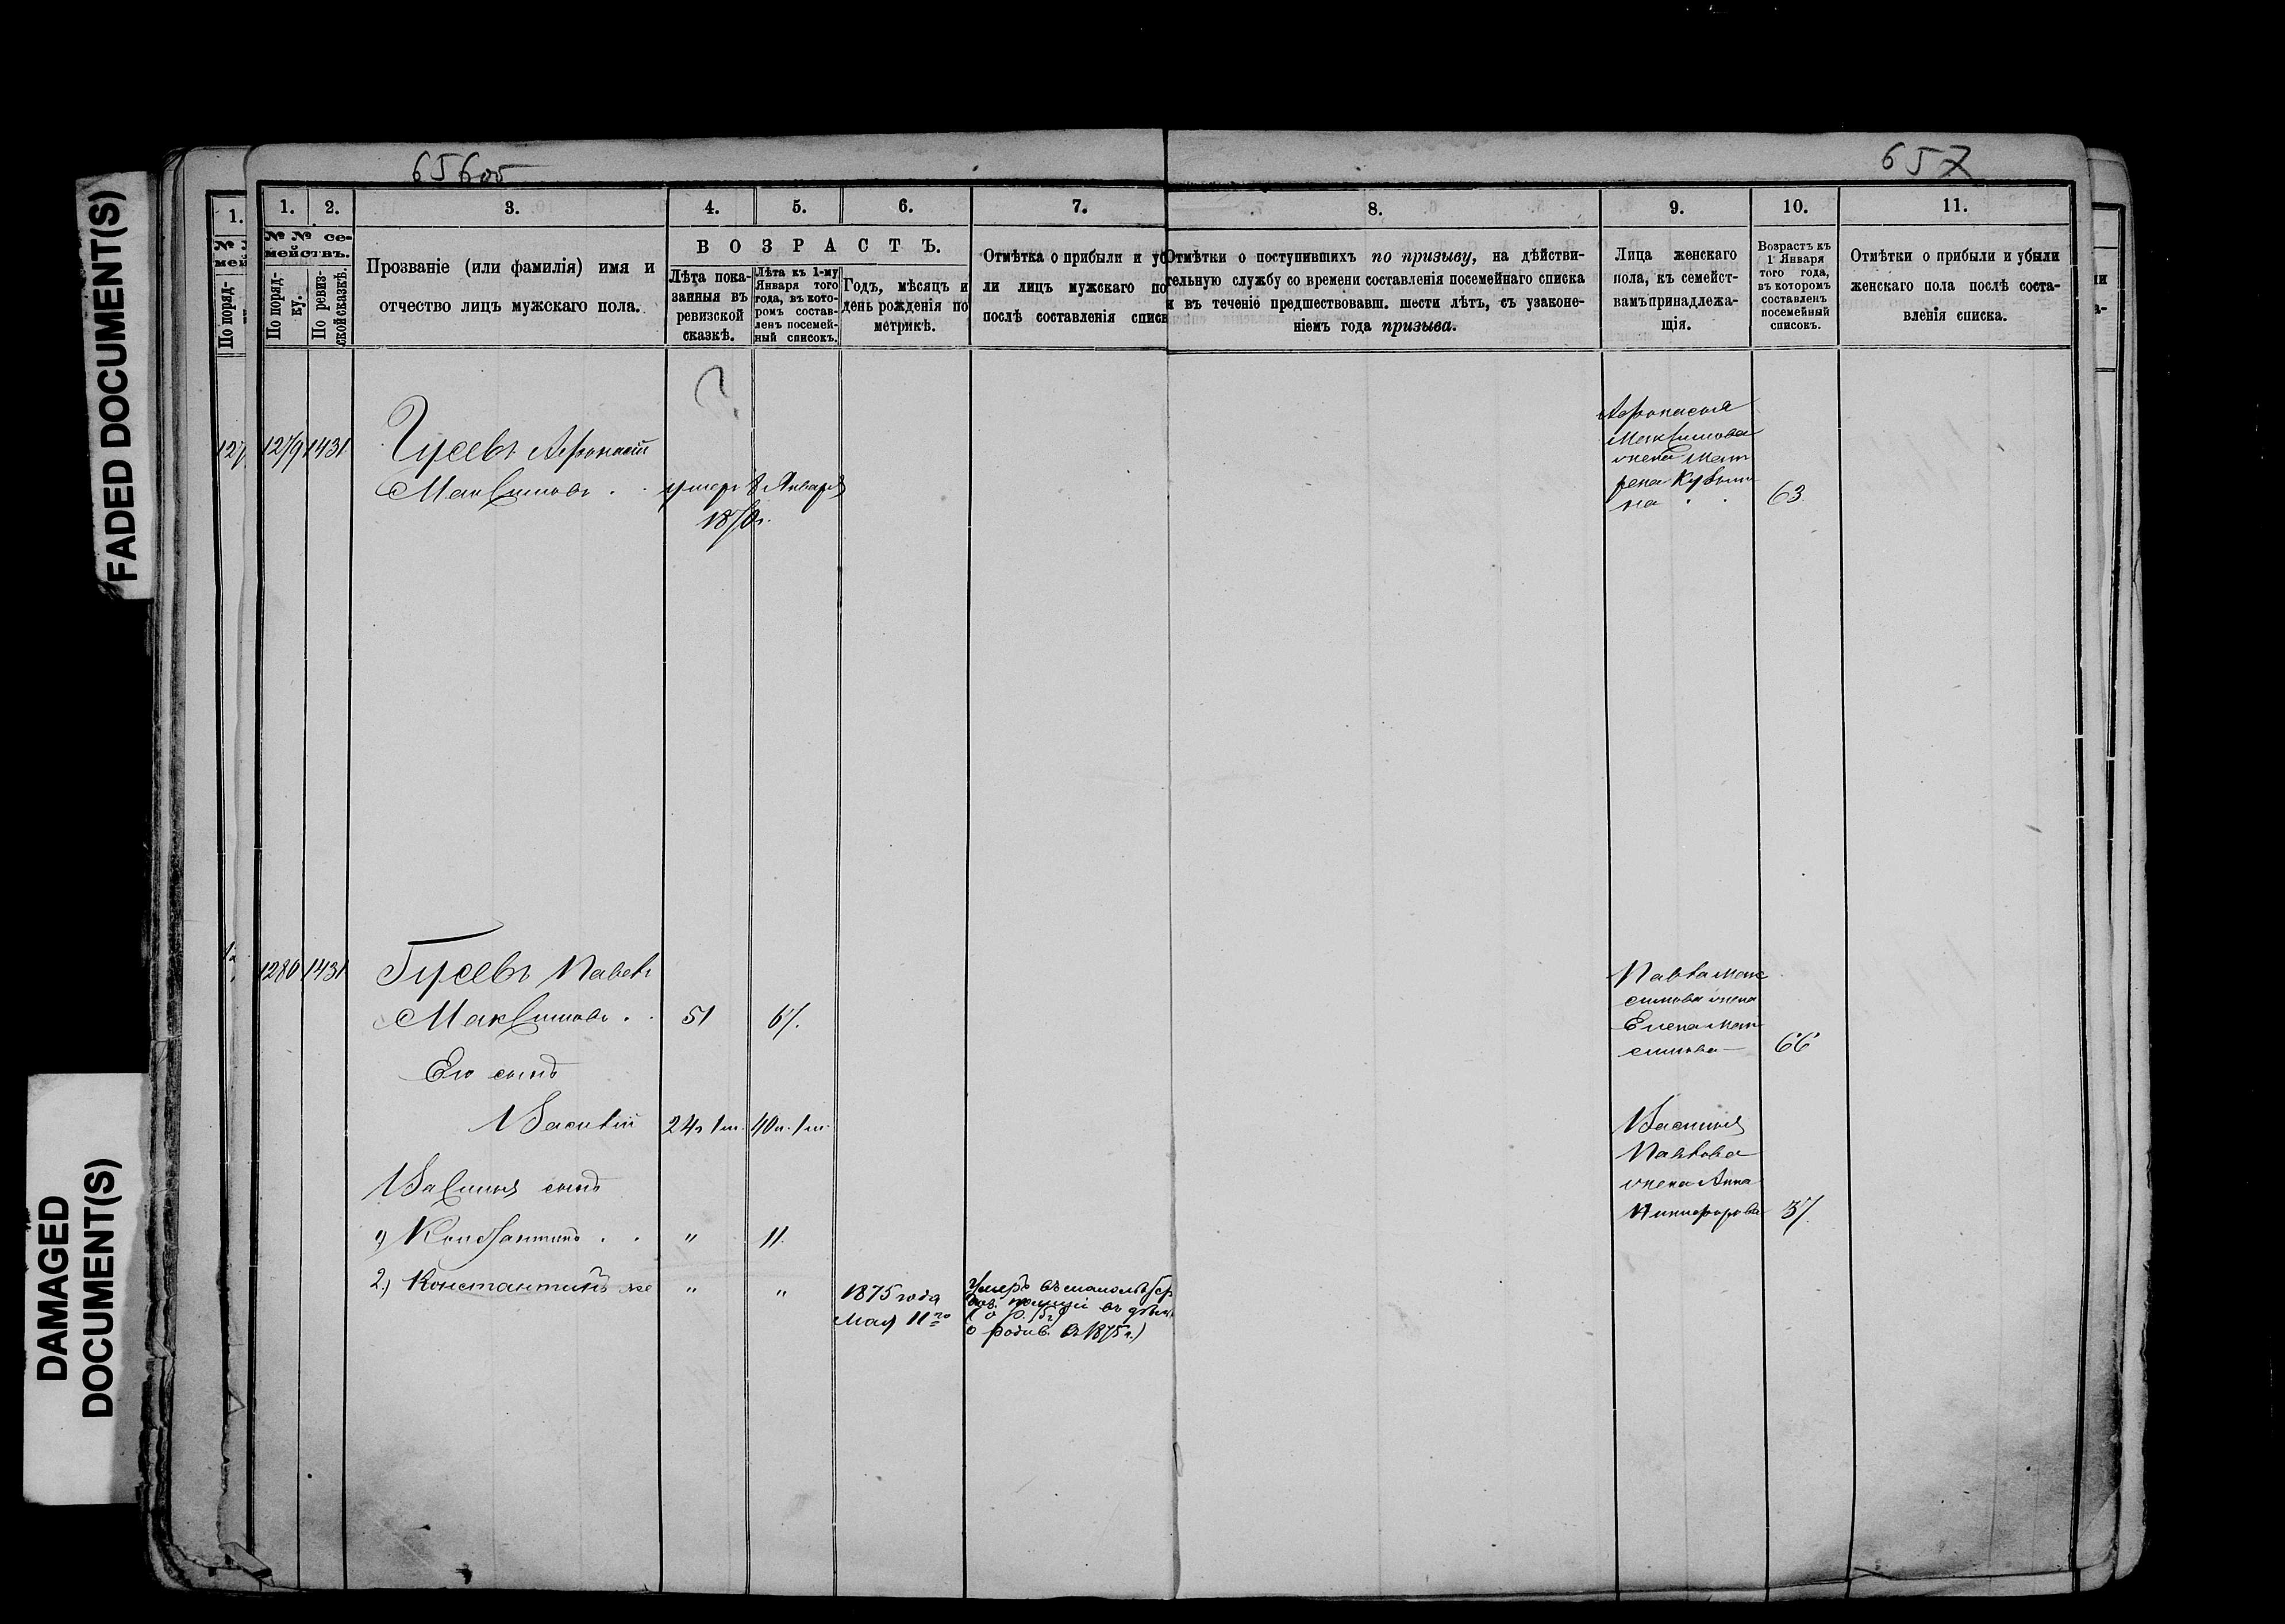 FADED DOCUMENT(S)
DAMAGED
DOCUMENT(S)
656об
657
1.
2.
3.
4.
5.
6.
7.
8.
9.
10.
11.
№ № се-
мействъ.
По поряд-
ку.
По ревиз-
ской сказкѣ.
Прозваніе (или фамилія) имя и
отчество лицъ мужскаго пола.
ВОЗРАСТЪ.
Лѣта пока-
занныя въ
ревизской
сказкѣ.
Лѣта къ 1-му
Января того
года, въ кото-
ромъ состав-
ленъ посемей-
ный списокъ.
Годъ, мѣсяцъ и
день рожденія по
метрикѣ.
Отмѣтка о прибыли и уб
ли лицъ мужскаго по
послѣ составленія списк
Отмѣтки о поступившихъ по призыву, на дѣйстви-
тельную службу со времени составленія посемейнаго списка
и въ теченіе предшествовавш. шести лѣтъ, съ узаконе-
ніемъ года призыва.
Лица женскаго
пола, къ семейст-
вамъ принадлежа-
щія.
Возрастъ къ
1 Января
того года,
въ которомъ
составленъ
посемейный
списокъ.
Отмѣтки о прибыли и убыли
женскаго пола послѣ соста-
вленія списка.
1279 1431
Гусевъ Афонасій
Максимовъ
умеръ 8 Января
1870 г.
Афонасія
Максимова
жена Мат
рена Кузьми
на
63.
1280 1431
Гусевъ Павелъ
Максимовъ 51 67.
Его сынъ
Василій 24 1 м. 40 л. 1 м.
Василья сынъ
1) Константинъ " 11.
2.) Константинъ же " "
1875 года
Мая 11го
Умеръ
о родив. 1875 г.)
Павла Мак
симова жена
Елена Мак
симова 66
Василья
Павлова
жена Анна
Никифорова 37.